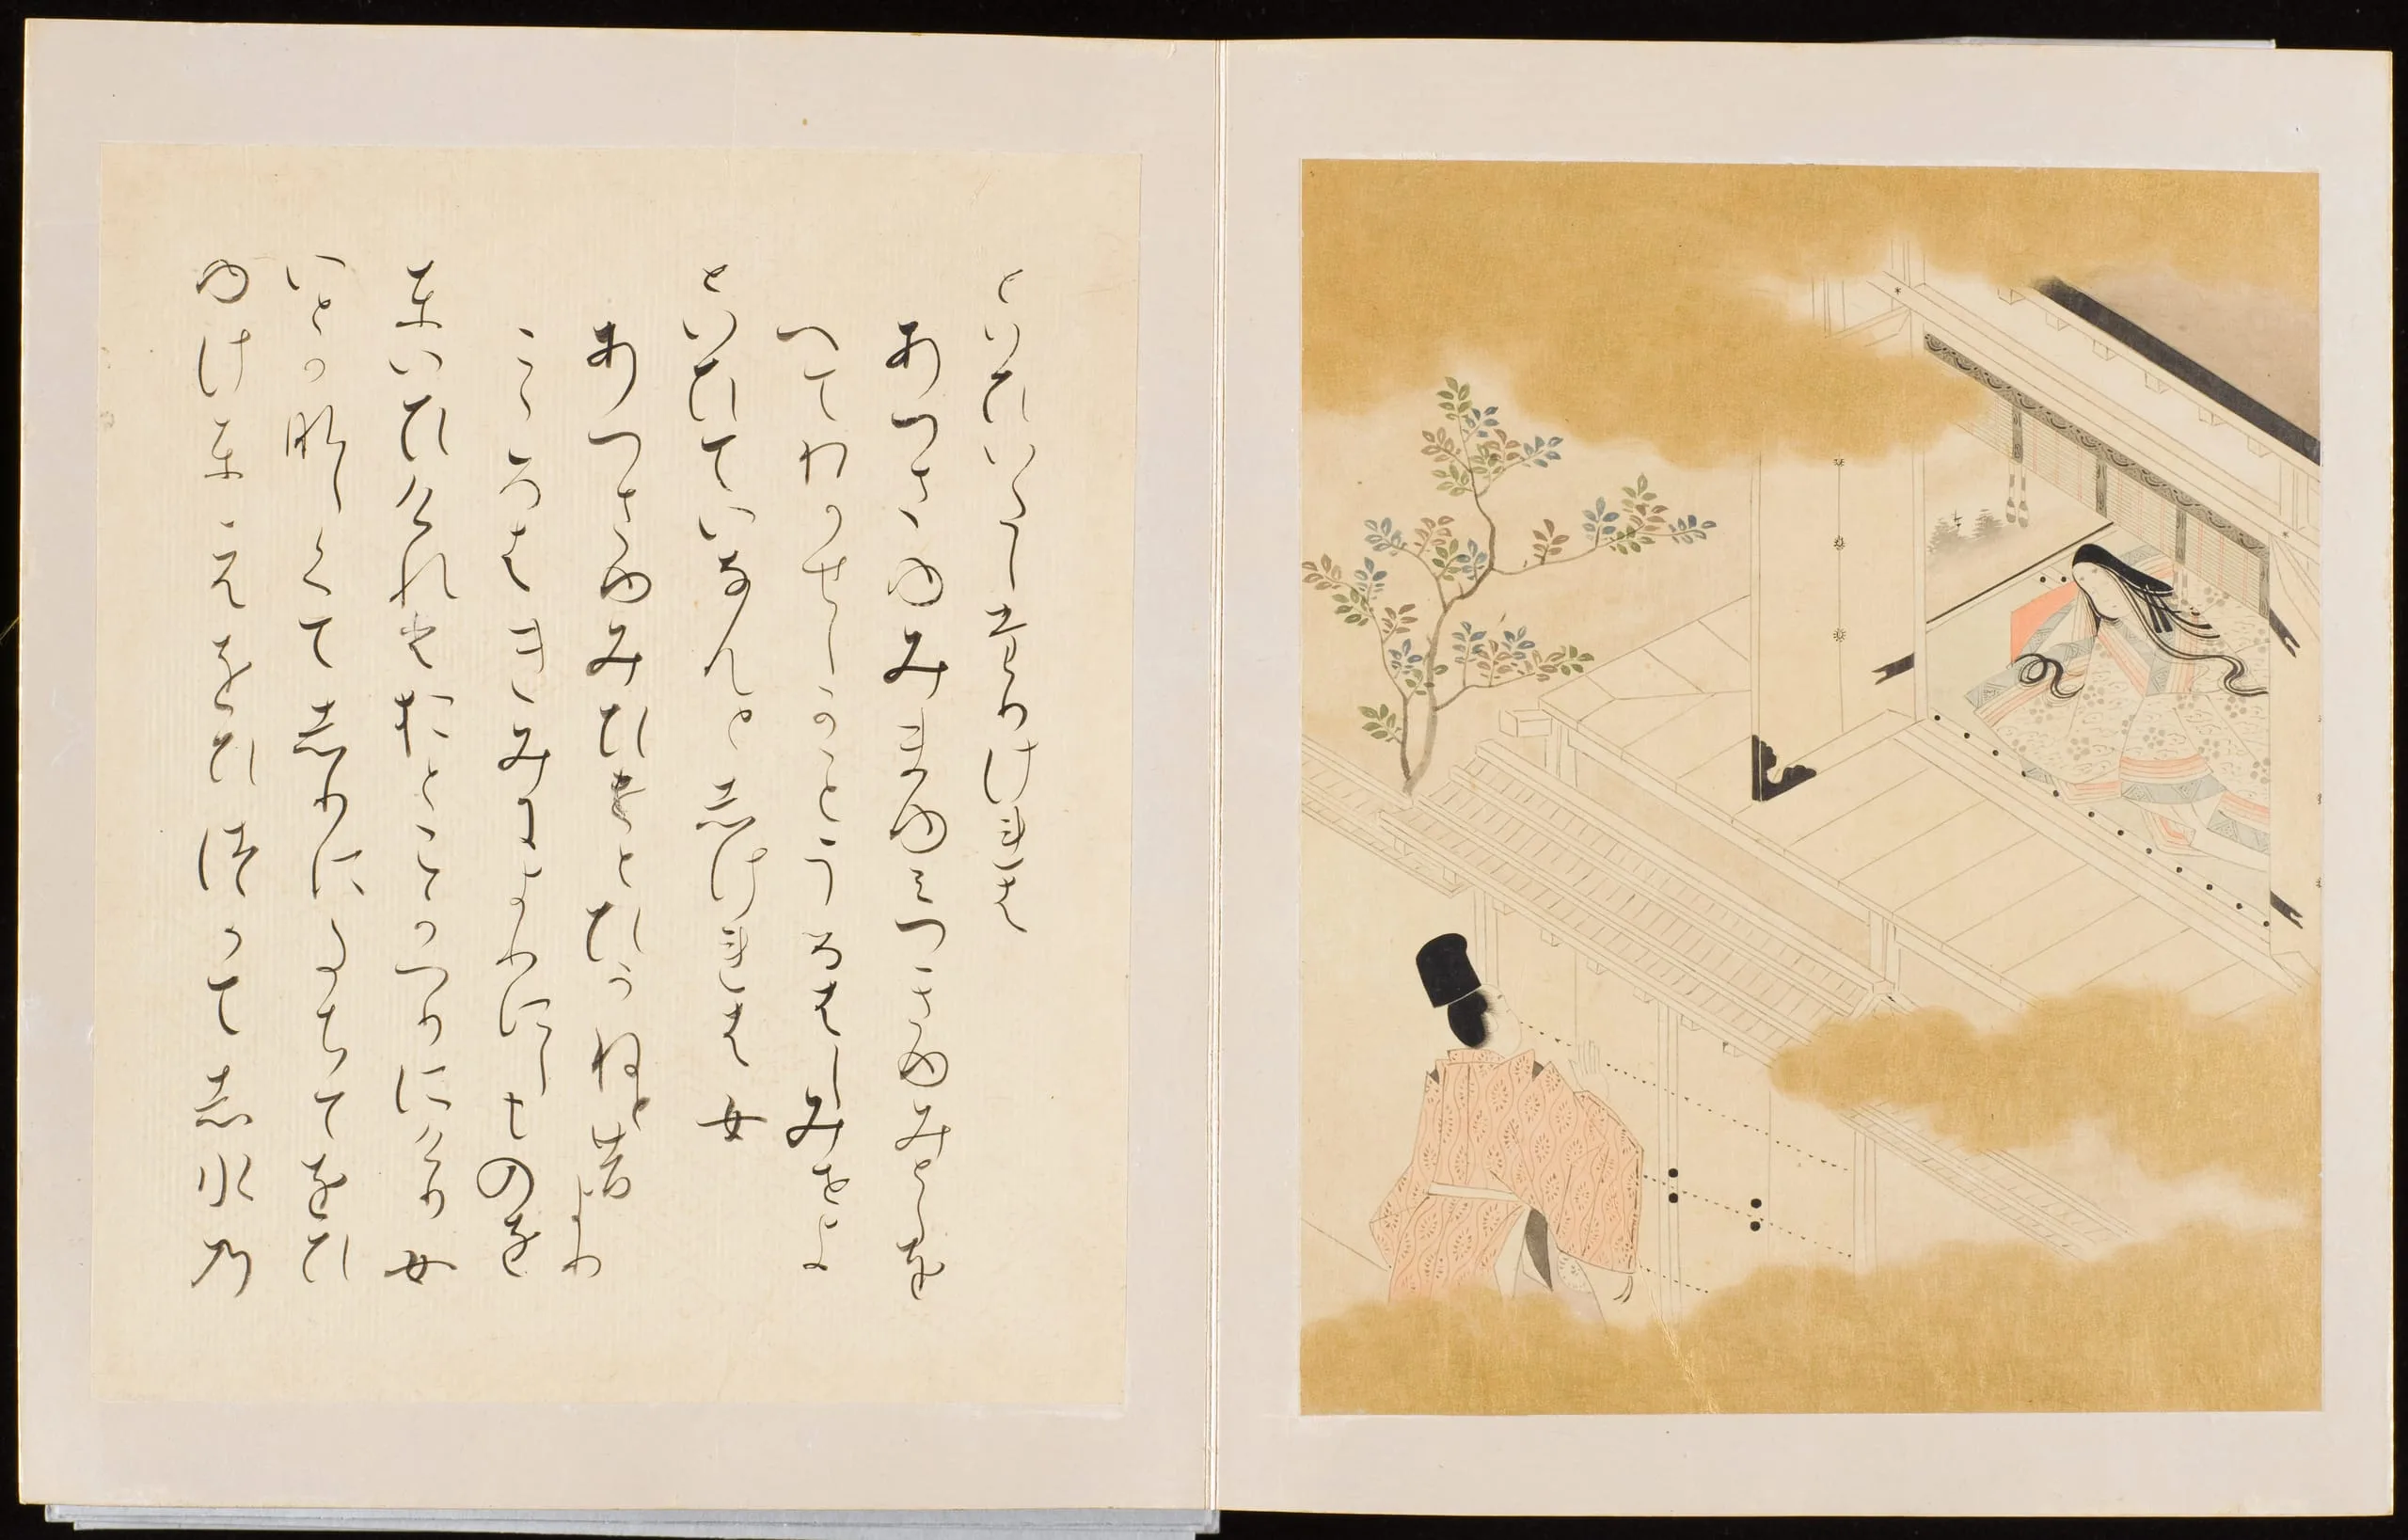 といひいたしたりけれは
あつさゆみまゆみつきゆみとしを
へてわかせしかことうるはしみせよ
といひていなむとしけれは女
あつさゆみひけとひかねと昔より
こゝろはきみによりにしものを
といひけれとおとこかへりにけり女
いとかなしくてしりにたちてをひ
ゆけとえをひつかてし水の